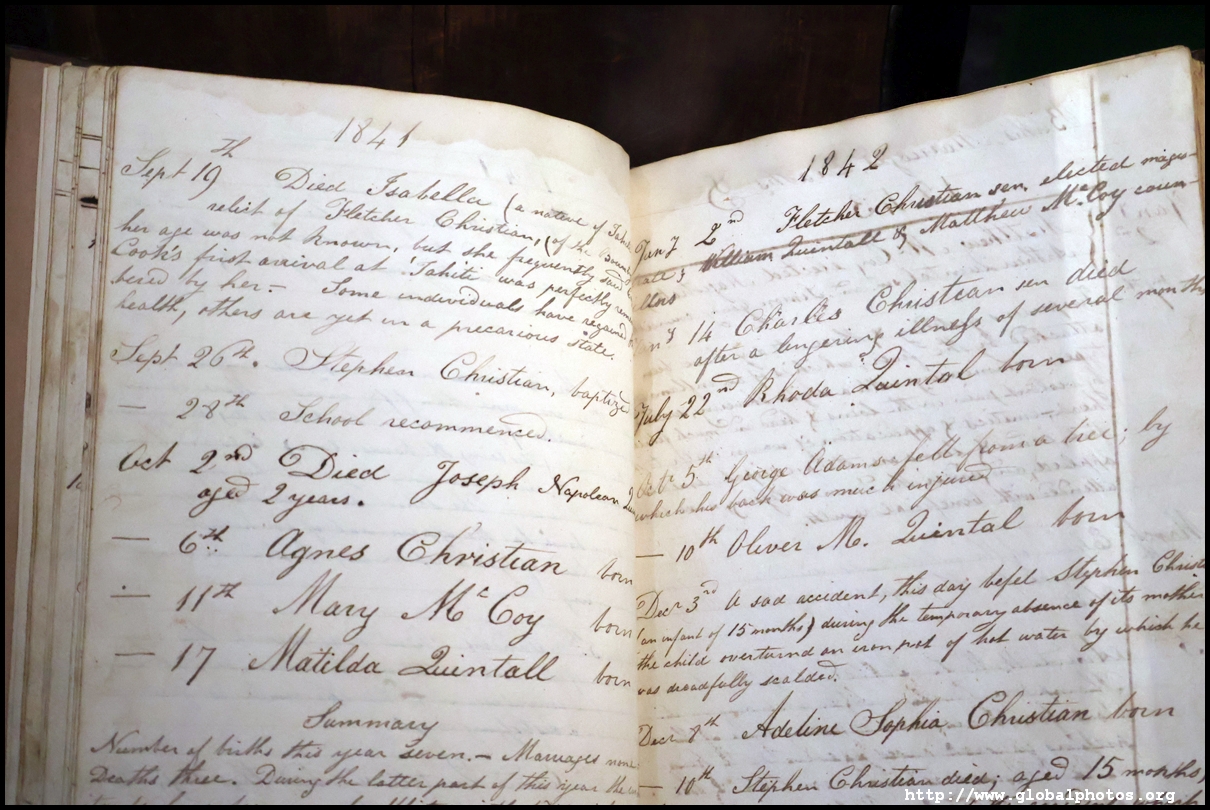 1841
Sept 19th Died Isabella (a native of
relict of Fletcher Christian, (of the
her age was not known, but she frequently said
Cook's first arrival at Tahiti was perfectly
bered by her. — Some individuals have regained
health, others are yet in a precarious state.
Sept 26th. Stephen Christian, baptized
— 28th School recommenced.
Oct 2nd Died Joseph Napolean
aged 2 years.
— 6th Agnes Christian born
— 11th Mary McCoy born
— 17 Matilda Quintall born
Summary
Number of births this year seven. — Marriages none
Deaths three. During the latter part of this year the
1842
Jany 2nd Fletcher Christian sen, elected magis-
William Quintall & Matthew McCoy coun-
14 Charles Christian sen died
after a lingering illness of several months
July 22nd Rhoda Quintal born
Octr 5th George Adams fell from a tree; by
which his back was much injured
— 10th Oliver M. Quintal born
Decr 3rd A sad accident, this day befel Stephen
(an infant of 15 months) during the temporary absence of its mother
the child overturned an iron pot of hot water by which he
was dreadfully scalded.
Decr 8th Adeline Sophia Christian born
— 10th Stephen Christian died; aged 15 months,
http://www.globalphotos.org